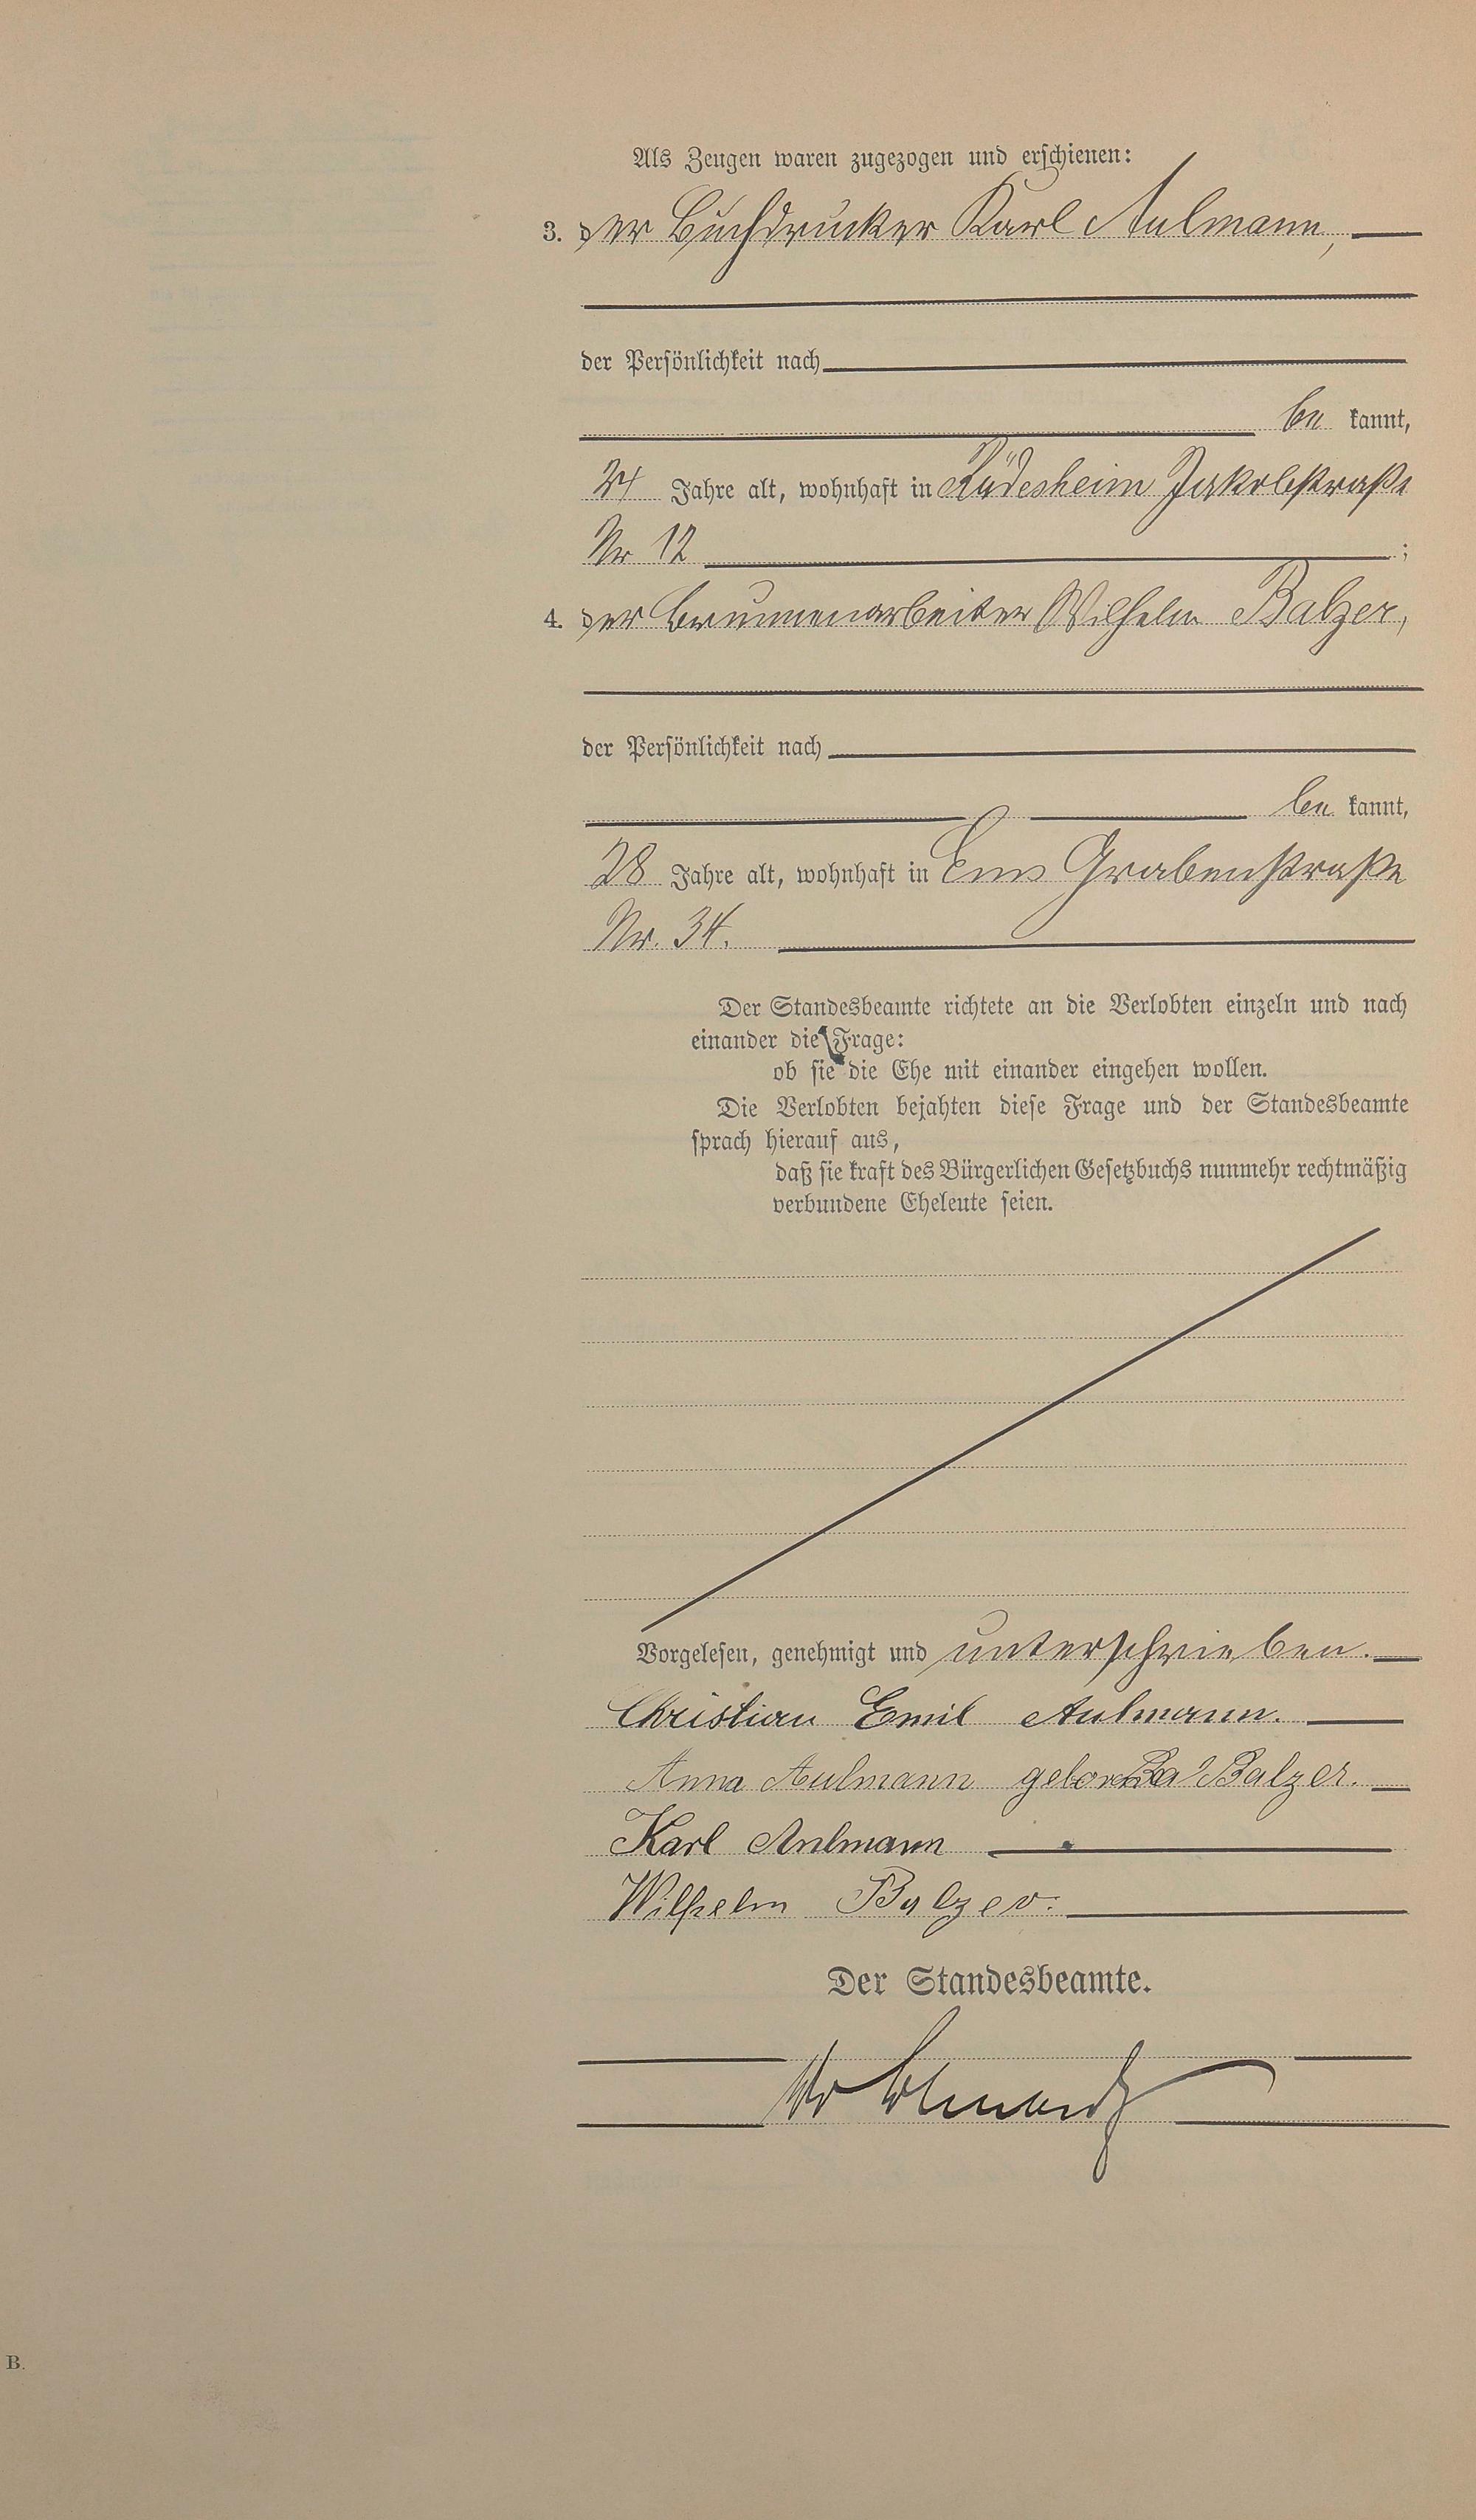 Als Zeugen waren zugezogen und erschienen:
3. der Buchdrucker Karl Aulmann,
der Persönlichkeit nach
be kannt,
24 Jahre alt, wohnhaft in Rüdesheim Jakobstraße
Nr 12 ;
4. der Brunnenarbeiter Wilhelm Balzer,
der Persönlichkeit nach
be kannt,
28 Jahre alt, wohnhaft in Ems Grabenstraße
Nr. 34.
Der Standesbeamte richtete an die Verlobten einzeln und nach
einander die Frage:
ob sie die Ehe mit einander eingehen wollen.
Die Verlobten bejahten diese Frage und der Standesbeamte
sprach hierauf aus,
daß sie kraft des Bürgerlichen Gesetzbuchs nunmehr rechtmäßig
verbundene Eheleute seien.
Vorgelesen, genehmigt und unterschrieben.
Christian Emil Aulmann.
Anna Aulmann Balzer.
Karl Aulmann
Wilhelm Balzer.
Der Standesbeamte.
B.